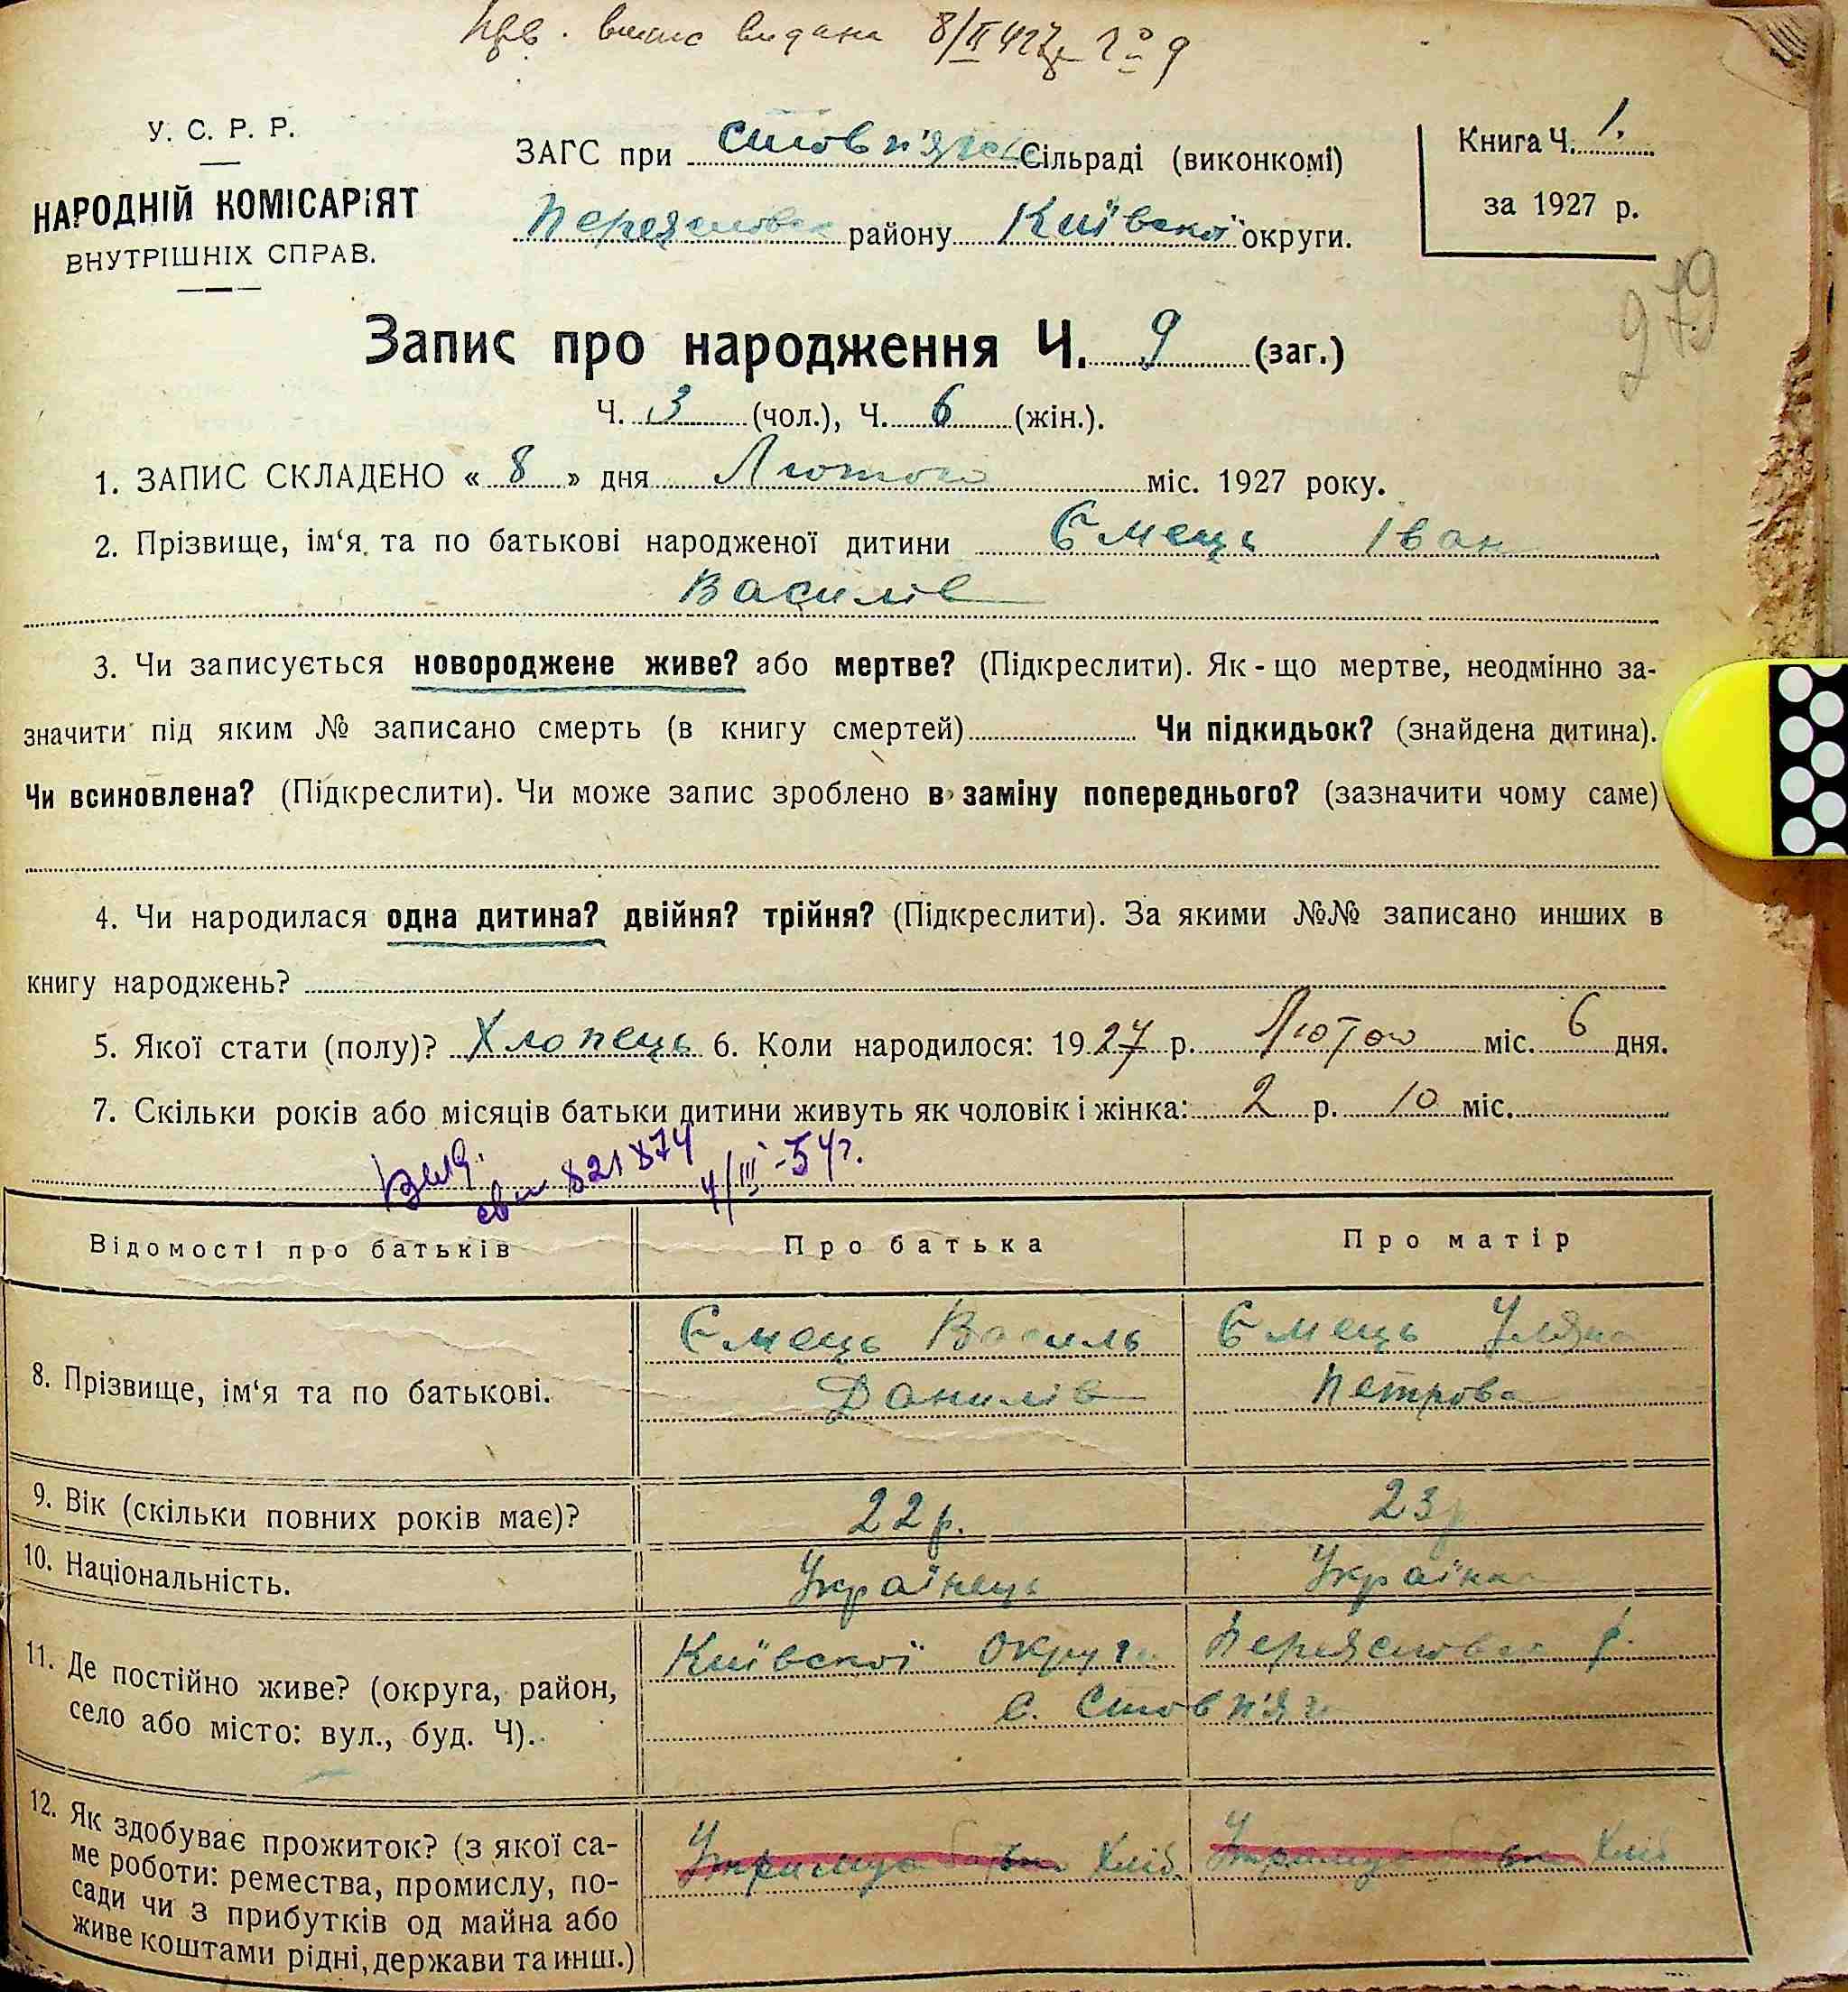 виписка видана 8/II 927 р № 9
У. С. Р. Р.
НАРОДНІЙ КОМІСАРІЯТ
ВНУТРІШНІХ СПРАВ.
ЗАГС при Стовп'язь Сільраді (виконкомі)
Переясловск району Київської округи.
Книга Ч. 1.
за 1927 р.
979
Запис про народження Ч. 9 (заг.)
Ч. 3 (чол.), Ч. 6 (жін.).
1. ЗАПИС СКЛАДЕНО « 8 » дня Лютого міс. 1927 року.
2. Прізвище, ім‘я та по батькові народженої дитини Ємець Іван
Василів
3. Чи записується новороджене живе? або мертве? (Підкреслити). Як-що мертве, неодмінно за-
значити під яким № записано смерть (в книгу смертей) Чи підкидьок? (знайдена дитина).
Чи всиновлена? (Підкреслити). Чи може запис зроблено в заміну попереднього? (зазначити чому саме)
4. Чи народилася одна дитина? двійня? трійня? (Підкреслити). За якими №№ записано инших в
книгу народжень?
5. Якої стати (полу)? Хлопець 6. Коли народилося: 1927 р. Лютого міс. 6 дня.
7. Скільки років або місяців батьки дитини живуть як чоловік і жінка: 2 р. 10 міс.
821874 4/III-54г.
Відомості про батьків
Про батька
Про матір
8. Прізвище, ім‘я та по батькові.
Ємець Василь
Данилів
Ємець Уляна
Петрова
9. Вік (скільки повних років має)?
22 р.
23 р
10. Національність.
Українець
Українка
11. Де постійно живе? (округа, район,
село або місто: вул., буд. Ч).
Київської Округи Переясловск р.
с. Стовп'яги
12. Як здобуває прожиток? (з якої са-
ме роботи: ремества, промислу, по-
сади чи з прибутків од майна або
живе коштами рідні, держави та инш.)
Утримує батьк Хліб.
Утримує батьк Хліб